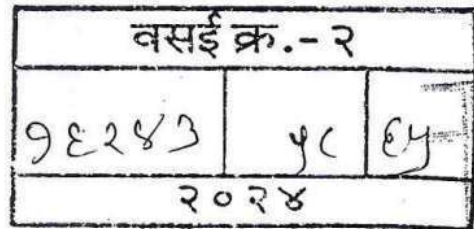 वसई क्र.-२
१६२४३ ५८ ६५
२०२४